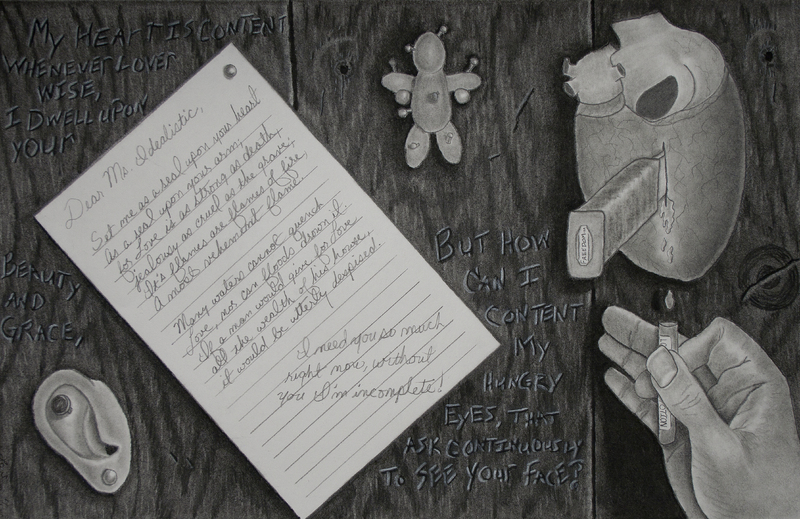 My Heart is content
whenever lover
wise,
I dwell upon
your
Beauty
and
Grace,
Dear Mr. Idealistic,
Set me as a seal upon your heart
as a seal upon your arm,
for love is as strong as death,
jealousy as cruel as the grave;
It's flames are flames of fire,
A most vehement flame.
Many waters cannot quench
Love, nor can floods drown it.
If a man would give for love
all the wealth of his house,
it would be utterly despised.
I need you so much
right now, without
you I'm incomplete!
But how
can I
content
my
hungry
eyes, that
ask continuously
to see your face?